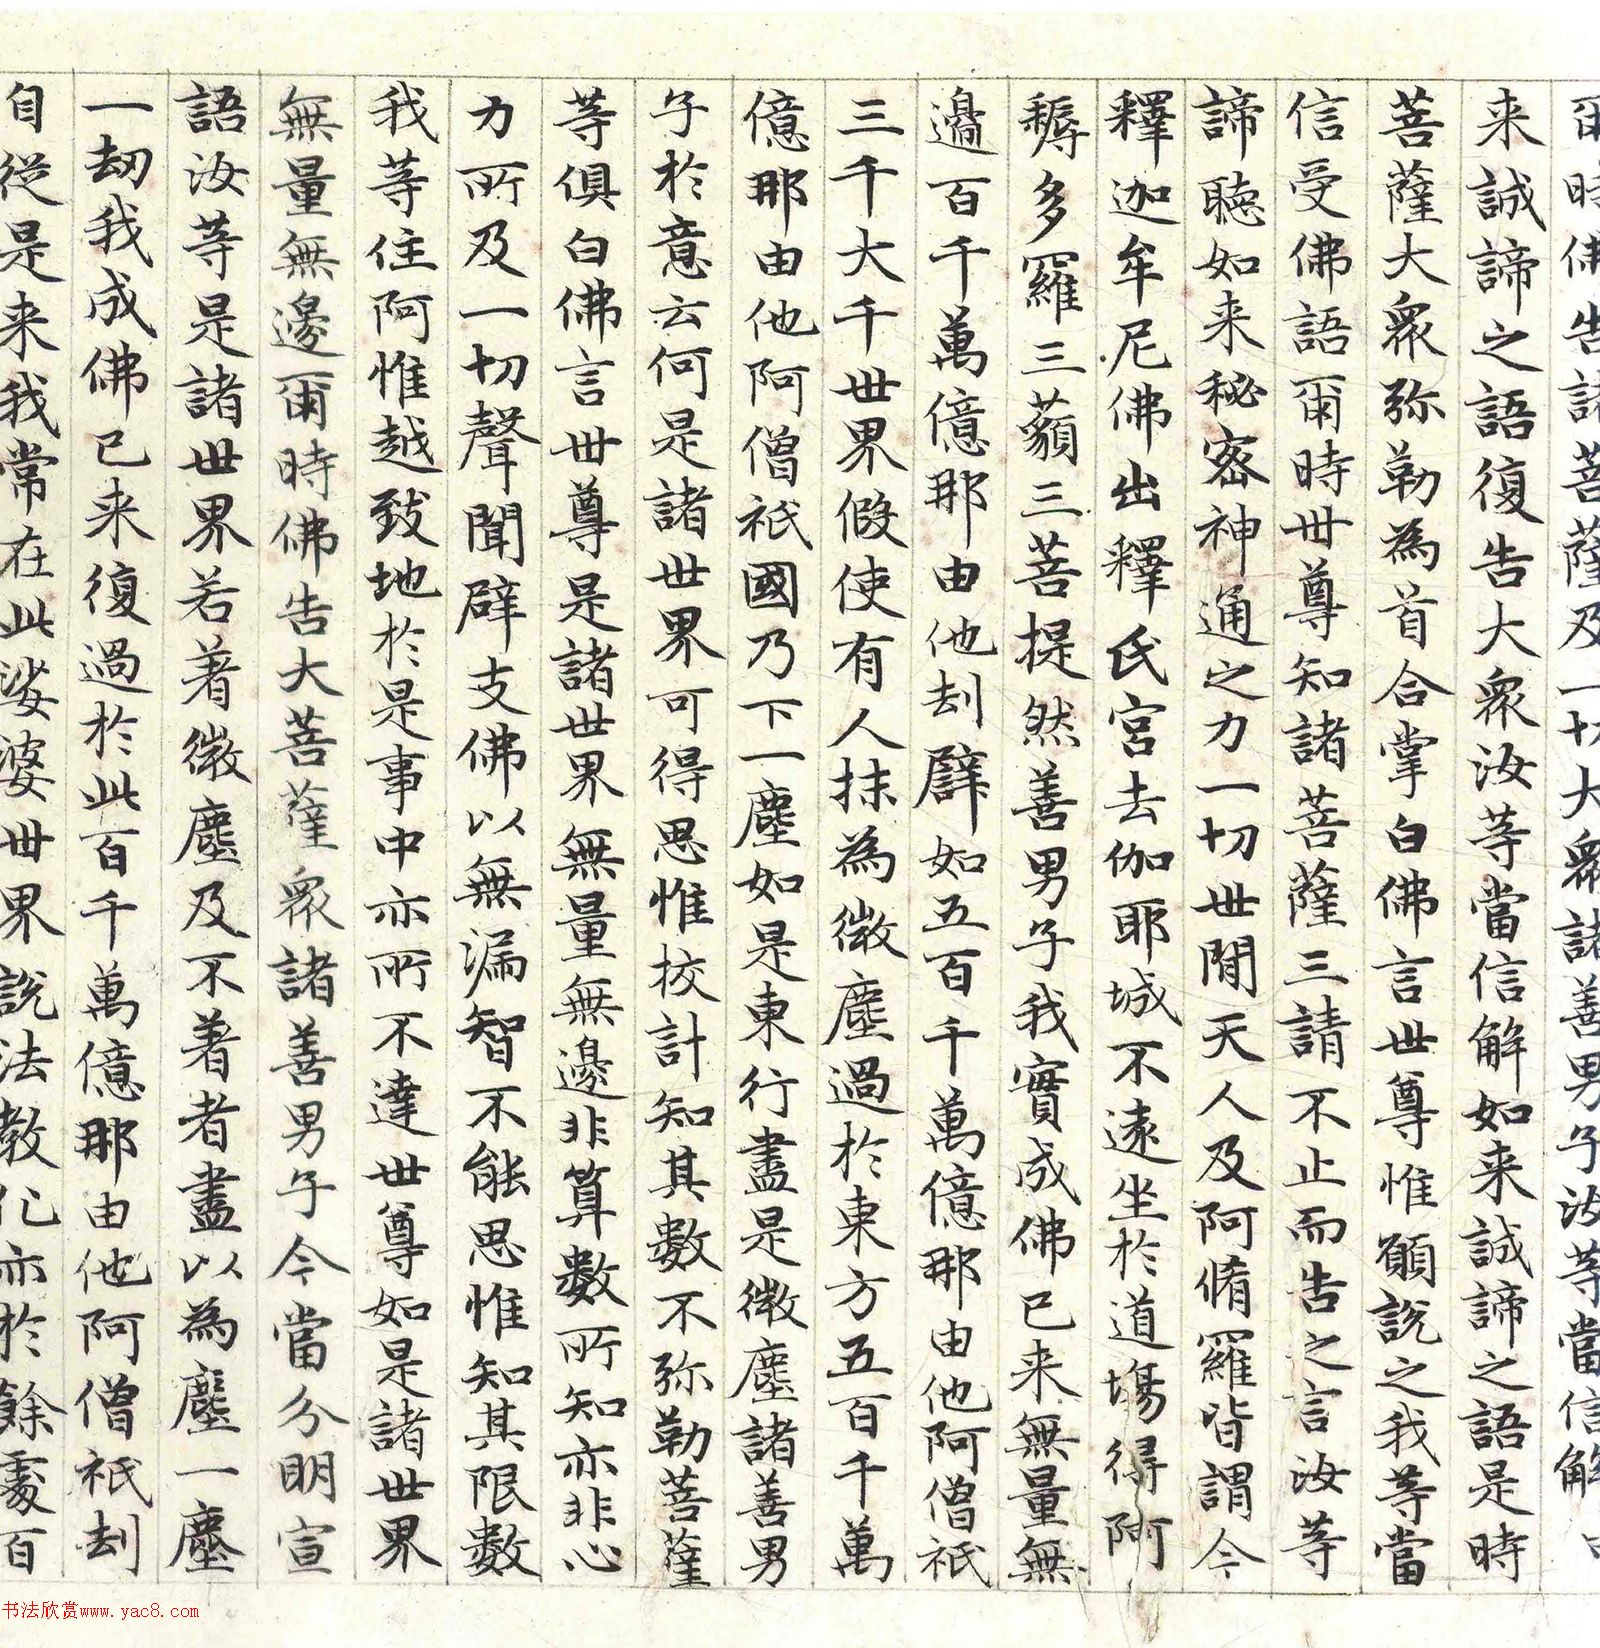 爾時佛告諸菩薩及一切大衆諸善男子汝等當信解
来誠諦之語復告大衆汝等當信解如来誠諦之語是時
菩薩大衆弥勒為首合掌白佛言世尊惟願説之我等當
信受佛語爾時世尊知諸菩薩三請不止而告之言汝等
諦聽如来秘密神通之力一切世間天人及阿脩羅皆謂今
釋迦牟尼佛出釋氏宮去伽耶城不遠坐於道場得阿
耨多羅三藐三菩提然善男子我實成佛已来無量無
邊百千萬億那由他刼譬如五百千萬億那由他阿僧祇
三千大千世界假使有人抹為微塵過於東方五百千萬
億那由他阿僧祇國乃下一塵如是東行盡是微塵諸善男
子於意云何是諸世界可得思惟挍計知其數不弥勒菩薩
等俱白佛言世尊是諸世界無量無邊非算數所知亦非心
力所及一切聲聞辟支佛以無漏智不能思惟知其限數
我等住阿惟越致地於是事中亦所不達世尊如是諸世界
無量無邊爾時佛告大菩薩衆諸善男子今當分明宣
語汝等是諸世界若著微塵及不著者盡以為塵一塵
一劫我成佛已来復過於此百千萬億那由他阿僧祇刼
自從是来我常在此娑婆世界説法教化亦於餘處百
书法欣赏www.yac8.com